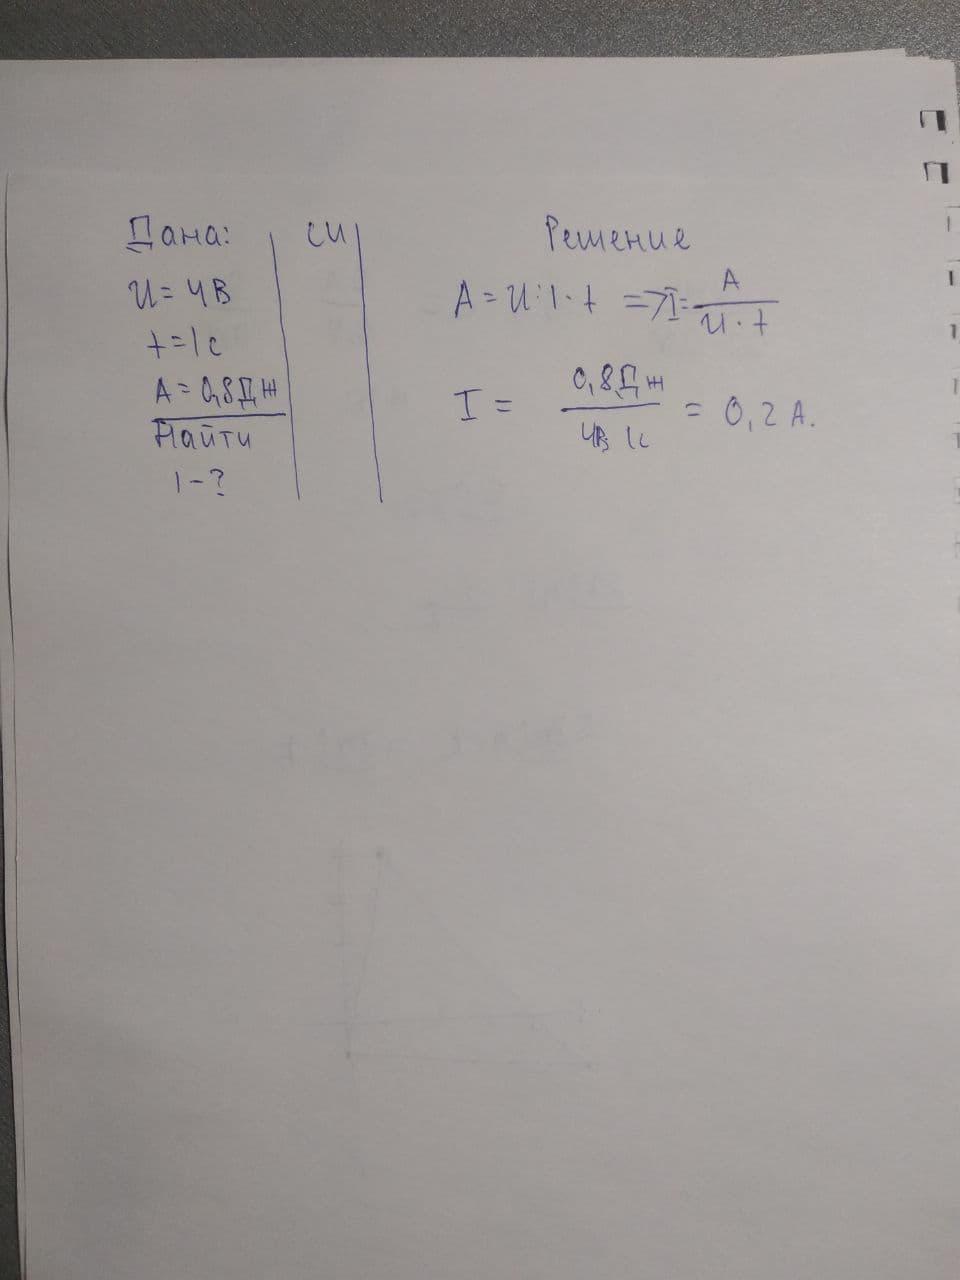 Дана:
U = 4В
t = 1c
A = 0,8Дж
Найти
I - ?
СИ
Решение
A = U · I · t => I = A / U · t
I = 0,8Дж / 4В 1с = 0,2 А.